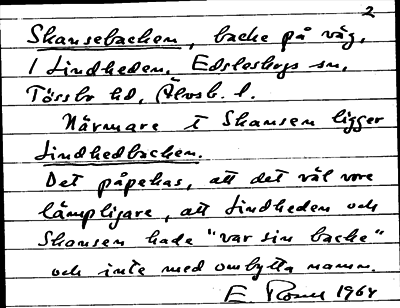 2
Skansebacken, backe på väg,
i Lindheden. Edsleskogs sn,
Tössbo hd, Älvsb. l.
Närmare t Skansen ligger
Lindhedbacken.
Det påpekas, att det väl vore
lämpligare, att Lindheden och
Skansen hade "var sin backe"
och inte med ombytta namn.
E 1964